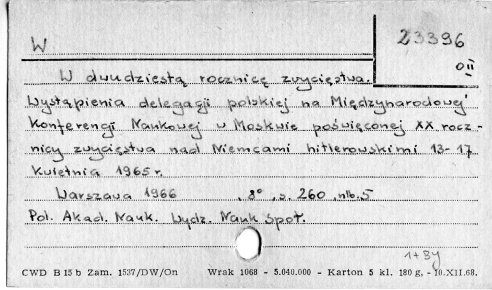 W
23396
OII
W dwudziestą rocznicę zwycięstwa.
Wystąpienia delegacji polskiej na Międzynarodowej
Konferencji Naukowej w Moskwie poświęconej XX rocz-
nicy zwycięstwa nad Niemcami hitlerowskimi 13-17
kwietnia 1965 r.
Warszawa 1966 , 8°, s. 260, nlb. 5
Pol. Akad. Nauk. Wydz. Nauk Społ.
1+BY
CWD B 15 b Zam. 1537/DW/On Wrak 1068 - 5.040.000 - Karton 5 kl. 180 g. - 10.XII.68.